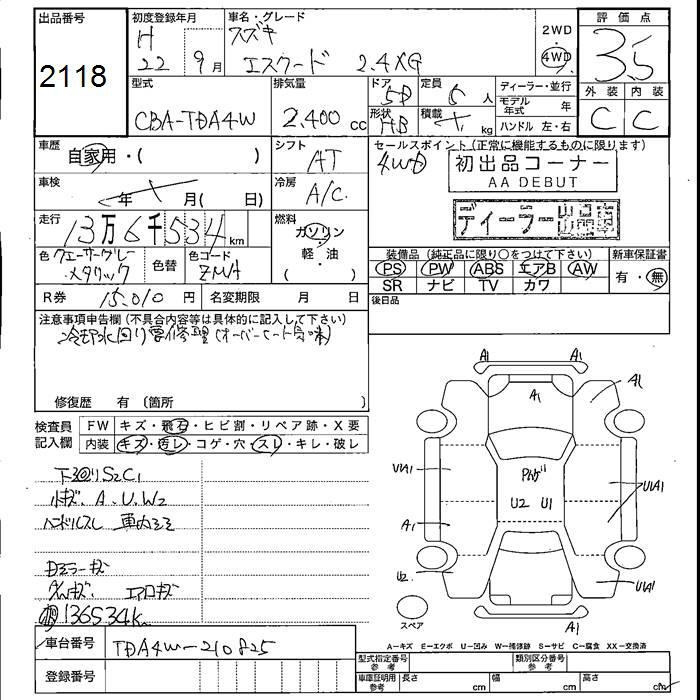 出品番号
2118
初度登録年月
H
22 9月
車名・グレード
スズキ
エスクード 2.4XG
2WD
4WD
評価点
3.5
外装 内装
C C
型式
CBA-TDA4W
排気量
2.400 cc
ドア
5D
形状
HB
定員
5 人
積載
kg
ディーラー・並行
モデル年式 年
ハンドル 左・右
車歴
自家用・( )
シフト
AT
セールスポイント(正常に機能するものに限ります)
4WD
初出品コーナー
AA DEBUT
ディーラー出品車
車検
年 月( 日)
冷房
A/C
走行
13万6千534km
燃料
ガソリン
軽・油
( )
色
クエーサーグレー
メタリック
色替
色コード
ZMA
装備品(純正品に限り○をつけて下さい)
PS PW ABS エアB AW
SR ナビ TV カワ
新車保証書
有・無
R券 15,010円
名変期限 月 日
後日品
注意事項申告欄(不具合内容等は具体的に記入して下さい)
冷却水回り要修理(オーバーヒート気味)
修復歴 有(箇所 )
検査員記入欄
FW キズ・飛石・ヒビ割・リペア跡・X要
内装 キズ・汚レ・コゲ・穴・スレ・キレ・破レ
下回りS2C1
小キズ. A. U. W2
ハンドルスレ
ドアミラーキズ
エアロキズ
136534k
A1 A1
A1
A1
UA1
Pルーゲ
U2 U1
UA1
A1
U2
UA1
A1
スペア
A−キズ E−エクボ U−凹み W−補修跡 S−サビ C−腐食 XX−交換済
車台番号
TDA4W-210825
登録番号
型式指定番号 参考
類別区分番号 参考
車庫証明用 参考
長さ cm
幅 cm
高さ cm